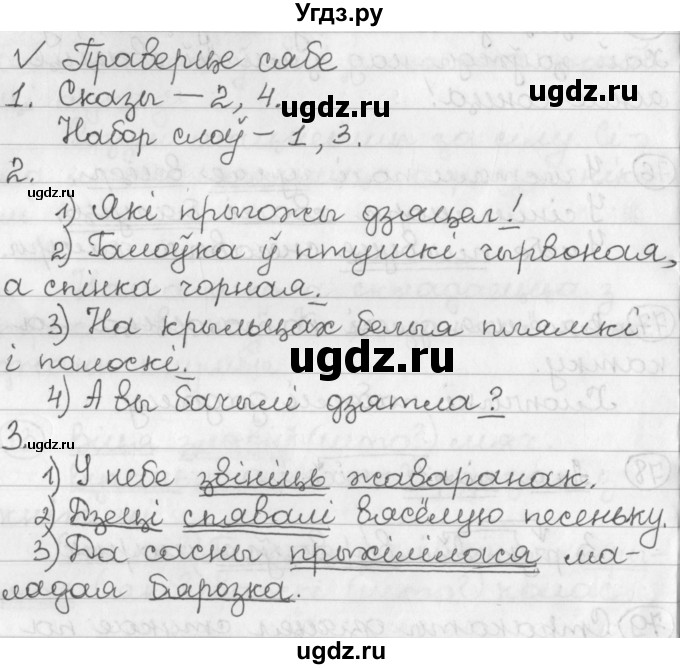 Угдз.ру
√ Праверце сябе
1. Сказы – 2, 4.
ugdz.ru
Набор слоў – 1, 3.
2.
ugdz.ru
1) Які прыгожы дзяцел!
ugdz.ru
2) Галоўка ў птушкі чырвоная,
а спінка чорная.
3) На крыльцах белыя плямкі
і палоскі.
ugdz.ru
4) А вы бачылі дзятла?
3.
ugdz.ru
1) У небе звініць жаваранак.
2) Дзеці спявалі вясёлую песеньку.
3) Да сасны прыхілілася ма-
ладая барозка.
ugdz.ru
ugdz.ru